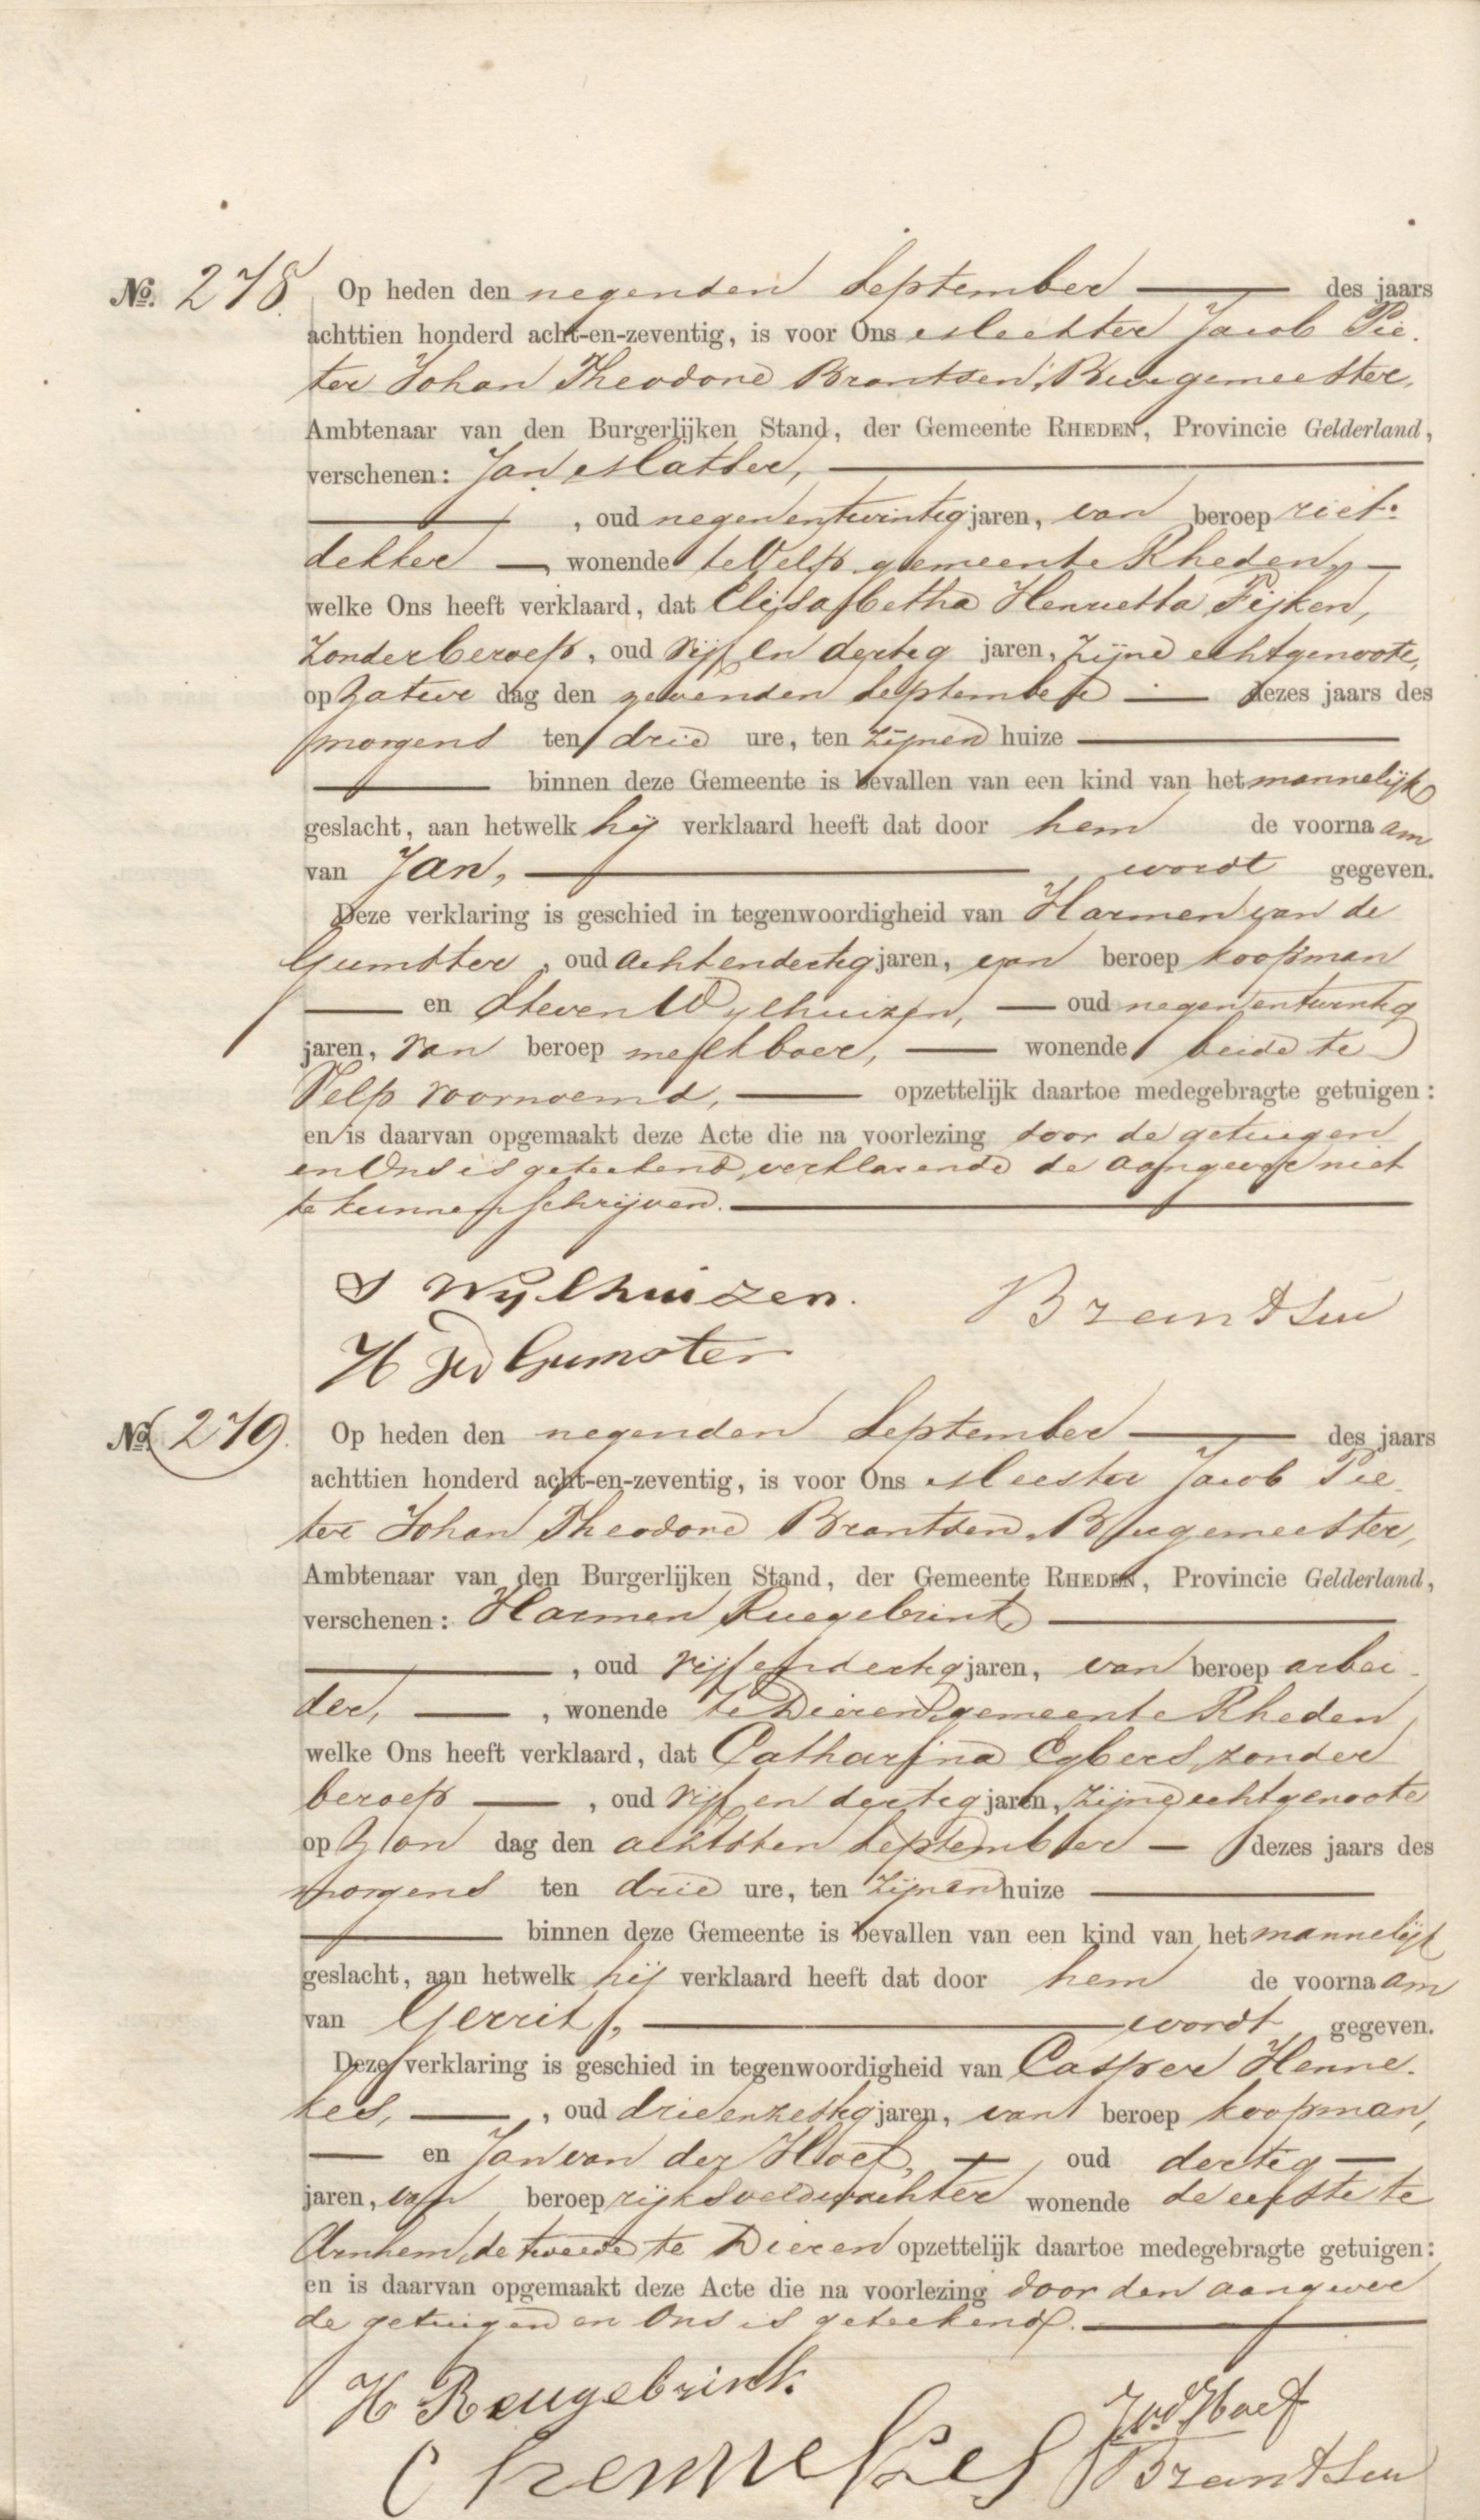 No. 278. Op heden den negenden September des jaars
achttien honderd acht-en-zeventig, is voor Ons Meester Jacob Pie-
ter Johan Theodore Brantsen, Burgemeester,
Ambtenaar van den Burgerlijken Stand, der Gemeente RHEDEN, Provincie Gelderland,
verschenen: Jan Matser,
, oud negenentwintig jaren, van beroep riet-
dekker, wonende te Velp gemeente Rheden,
welke Ons heeft verklaard, dat Elisabetha Henrietta Pijken,
zonder beroep, oud vijf en dertig jaren, zijne echtgenoote,
op Zatur dag den zevenden September dezes jaars des
morgens ten drie ure, ten zijnen huize
binnen deze Gemeente is bevallen van een kind van het mannelijk
geslacht, aan hetwelk hij verklaard heeft dat door hem de voornaam
van Jan, wordt gegeven.
Deze verklaring is geschied in tegenwoordigheid van Harmen van de
Gumster, oud achtendertig jaren, van beroep koopman
en Steven Wylhuizen, oud negenentwintig
jaren, van beroep melkboer, wonende beide te
Velp voornoemd, opzettelijk daartoe medegebragte getuigen:
en is daarvan opgemaakt deze Acte die na voorlezing door de getuigen
en Ons is geteekend, verklarende de aangever niet
te kunnen schrijven.
S Wylhuizen. Brantsen
H vd Gumster
No. 279. Op heden den negenden September des jaars
achttien honderd acht-en-zeventig, is voor Ons Meester Jacob Pie-
ter Johan Theodore Brantsen, Burgemeester,
Ambtenaar van den Burgerlijken Stand, der Gemeente RHEDEN, Provincie Gelderland,
verschenen: Harmen Ruegebrink
, oud vijfendertig jaren, van beroep arbei-
der, , wonende te Dieren gemeente Rheden
welke Ons heeft verklaard, dat Catharina Egbers, zonder
beroep , oud vijf en dertig jaren, zijne echtgenoote
op Zon dag den achtsten September dezes jaars des
morgens ten drie ure, ten zijnen huize
binnen deze Gemeente is bevallen van een kind van het mannelijk
geslacht, aan hetwelk hij verklaard heeft dat door hem de voornaam
van Gerrit, wordt gegeven.
Deze verklaring is geschied in tegenwoordigheid van Casper Henne-
kes, , oud drieenzestig jaren, van beroep koopman,
en Jan van der Hoef, oud dertig
jaren, van beroep rijksveldwachter wonende de eerste te
Arnhem, de tweede te Dieren opzettelijk daartoe medegebragte getuigen:
en is daarvan opgemaakt deze Acte die na voorlezing door den aangever
de getuigen en Ons is geteekend.
H Reugebrink.
J vd Hoef
C Hennekes Brantsen